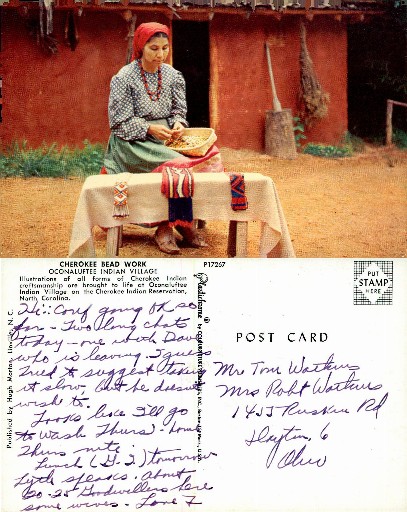 CHEROKEE BEAD WORK
OCONALUFTEE INDIAN VILLAGE
P17267
Illustrations of all forms of Cherokee Indian
craftsmanship are brought to life at Oconaluftee
Indian Village on the Cherokee Indian Reservation,
North Carolina.
Published by Hugh Morton, N. C.
Plastichrome
PUT
STAMP
HERE
POST CARD
Hi: Conf going OK so
far - Two long chats
today - one with Dave
who is leaving. I guess
Tried to suggest taking
it slow but he doesn't
wish to.
Looks like I'll go
to Wash Thurs - home
Thurs nite.
Lunch (G-I) tomorrow
speaks. About
20-25 Goodwillers here
some wives. Love F
Mr Tom Watkins
Mrs Robt Watkins
1455 Ruskin Rd
Dayton 6
Ohio